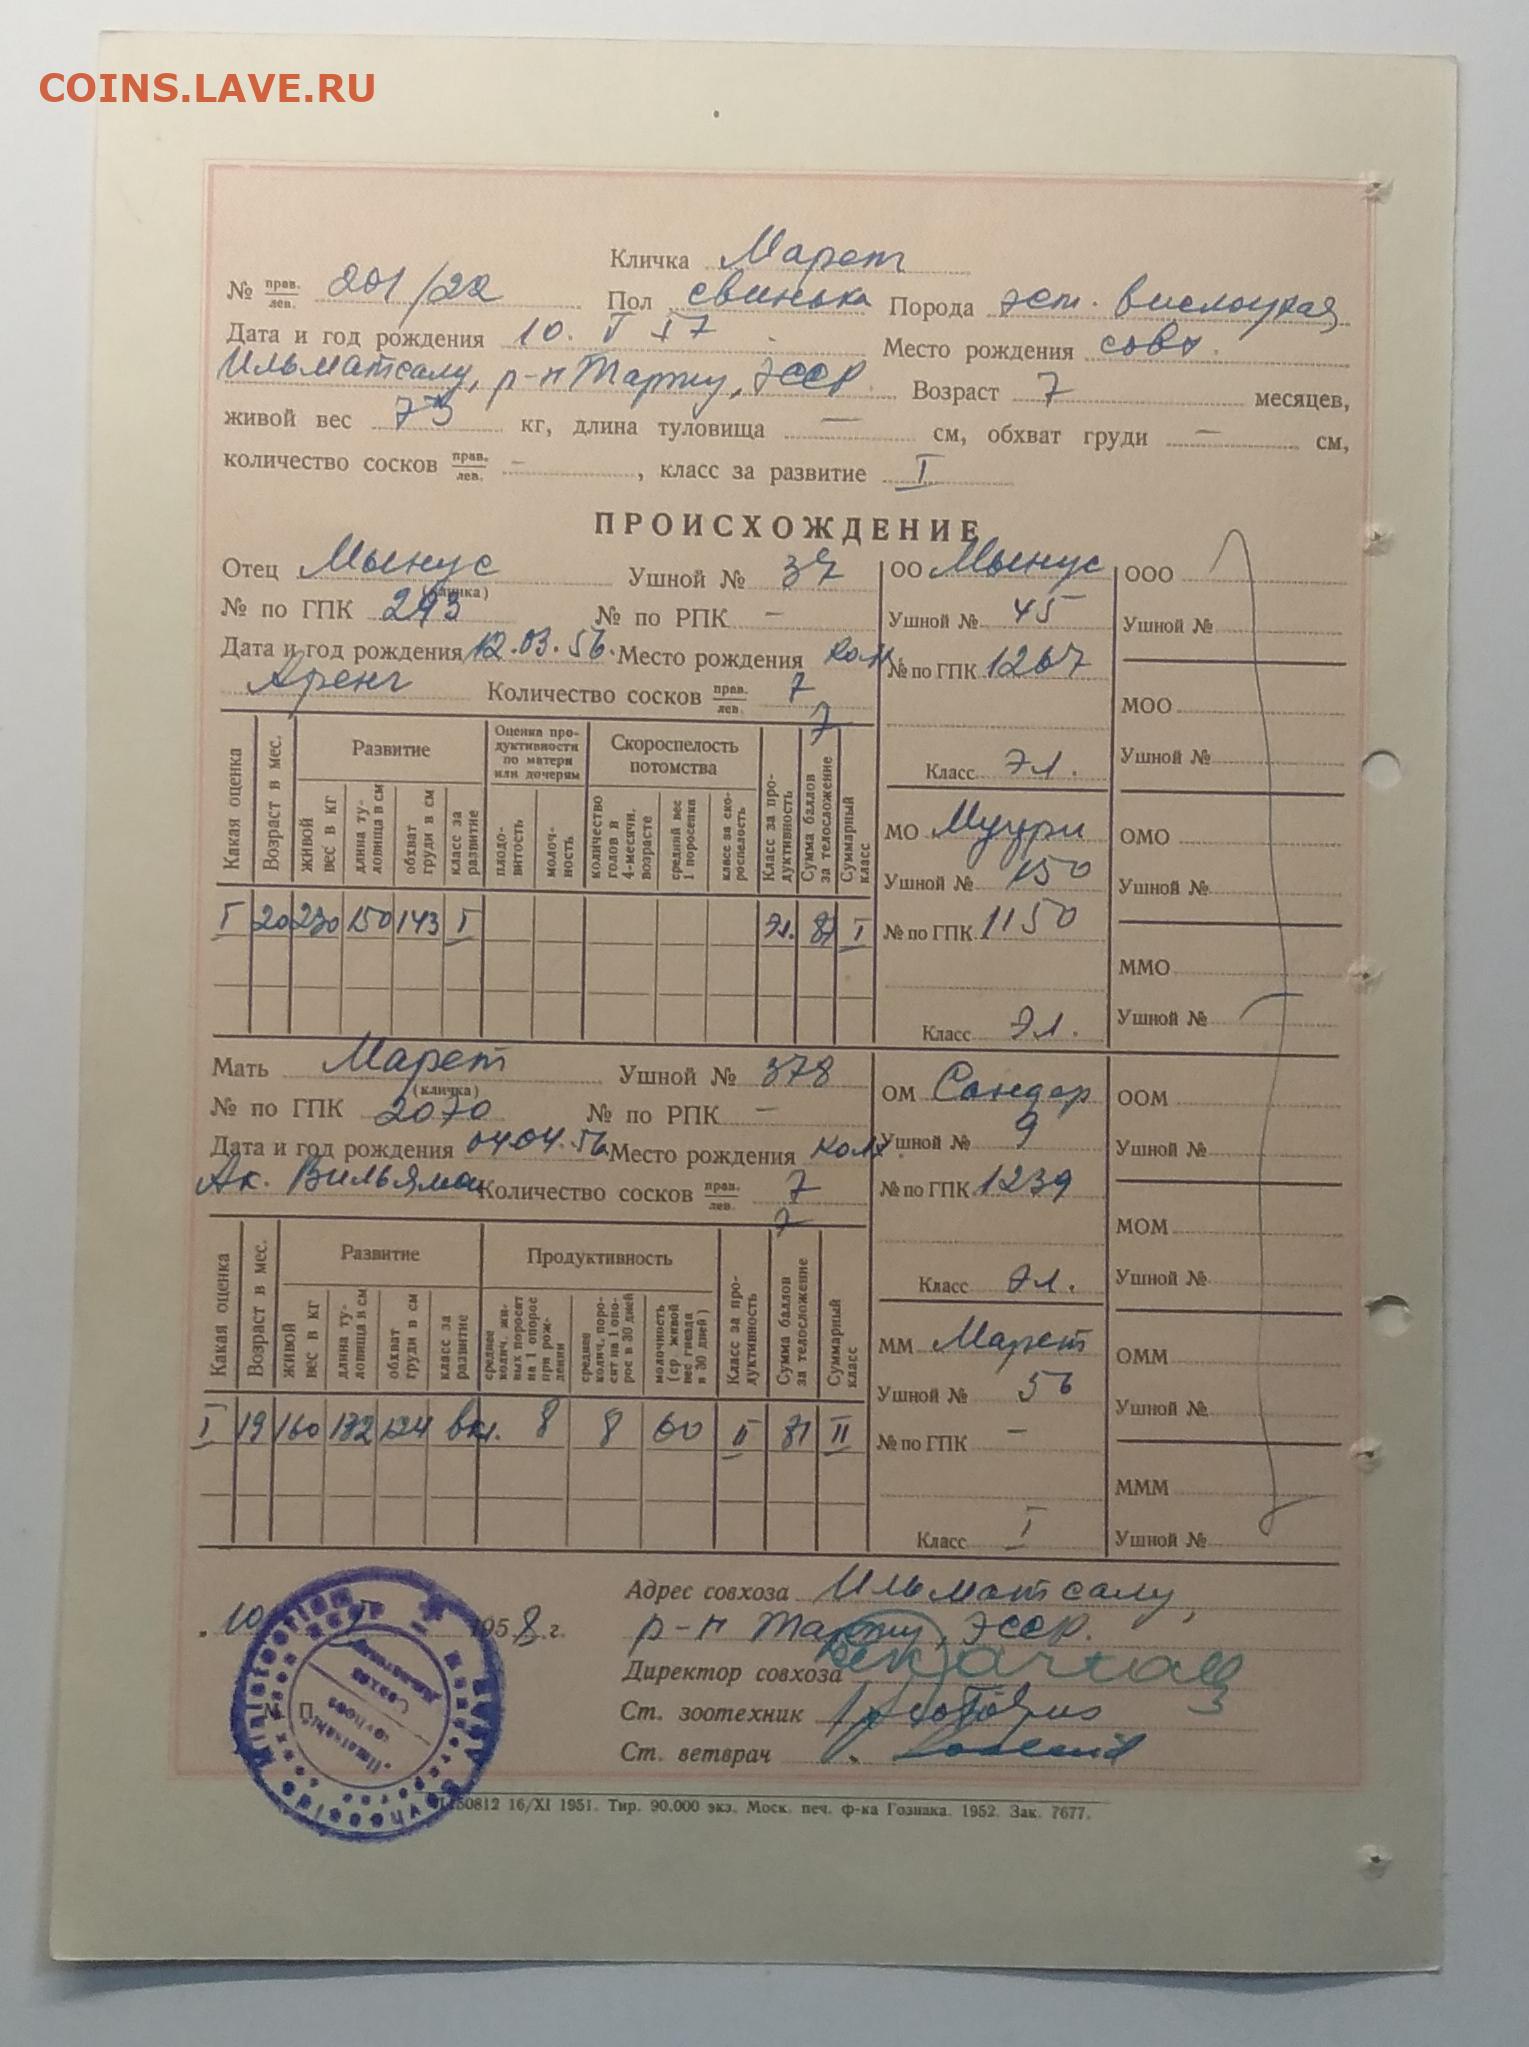 COINS.LAVE.RU
Кличка Марет
№ прав./лев. 201/22 Пол свинька Порода эст. вислоухая
Дата и год рождения 10. Место рождения совх.
Ильматсалу, р-н Тарту, ЭССР. Возраст 7 месяцев,
живой вес 73 кг, длина туловища — см, обхват груди — см,
количество сосков прав./лев. –, класс за развитие I
ПРОИСХОЖДЕНИЕ
Отец Мынус Ушной № 37
(кличка)
№ по ГПК 293 № по РПК –
Дата и год рождения 12.03.56. Место рождения колх.
Аренг Количество сосков прав./лев. 7 7
Какая оценка
Возраст в мес.
Развитие
живой вес в кг
длина туловища в см
обхват груди в см
класс за развитие
Оценка продуктивности по матери или дочерям
плодовитость
молочность
Скороспелость потомства
количество голов в 4-месячн. возрасте
средний вес 1 поросенка
класс за скороспелость
Класс за продуктивность
Сумма баллов за телосложение
Суммарный класс
I 20 230 150 143 I Эл. 87 I
ОО Мынус
Ушной № 45
№ по ГПК 1267
Класс Эл.
МО Муури
Ушной № 150
№ по ГПК 1150
Класс Эл.
ООО
Ушной №
МОО
Ушной №
ОМО
Ушной №
ММО
Ушной №
Мать Марет Ушной № 378
(кличка)
№ по ГПК 2070 № по РПК –
Дата и год рождения 04.04.56 Место рождения колх.
Ак. Вильямса Количество сосков прав./лев. 7 7
Какая оценка
Возраст в мес.
Развитие
живой вес в кг
длина туловища в см
обхват груди в см
класс за развитие
Продуктивность
среднее колич. живых поросят на 1 опорос при рождении
среднее колич. поросят на 1 опорос в 30 дней
молочность (ср. живой вес гнезда в 30 дней)
Класс за продуктивность
Сумма баллов за телосложение
Суммарный класс
I 19 160 132 124 вкл. 8 8 60 II 81 II
ОМ Сандер
Ушной № 9
№ по ГПК 1239
Класс Эл.
ММ Марет
Ушной № 56
№ по ГПК –
Класс I
ООМ
Ушной №
МОМ
Ушной №
ОММ
Ушной №
МММ
Ушной №
Адрес совхоза Ильматсалу,
р-н Тарту, ЭССР.
10 1958 г.
М. П.
Директор совхоза
Ст. зоотехник
Ст. ветврач
50812 16/XI 1951. Тир. 90.000 экз. Моск. печ. ф-ка Гознака. 1952. Зак. 7677.